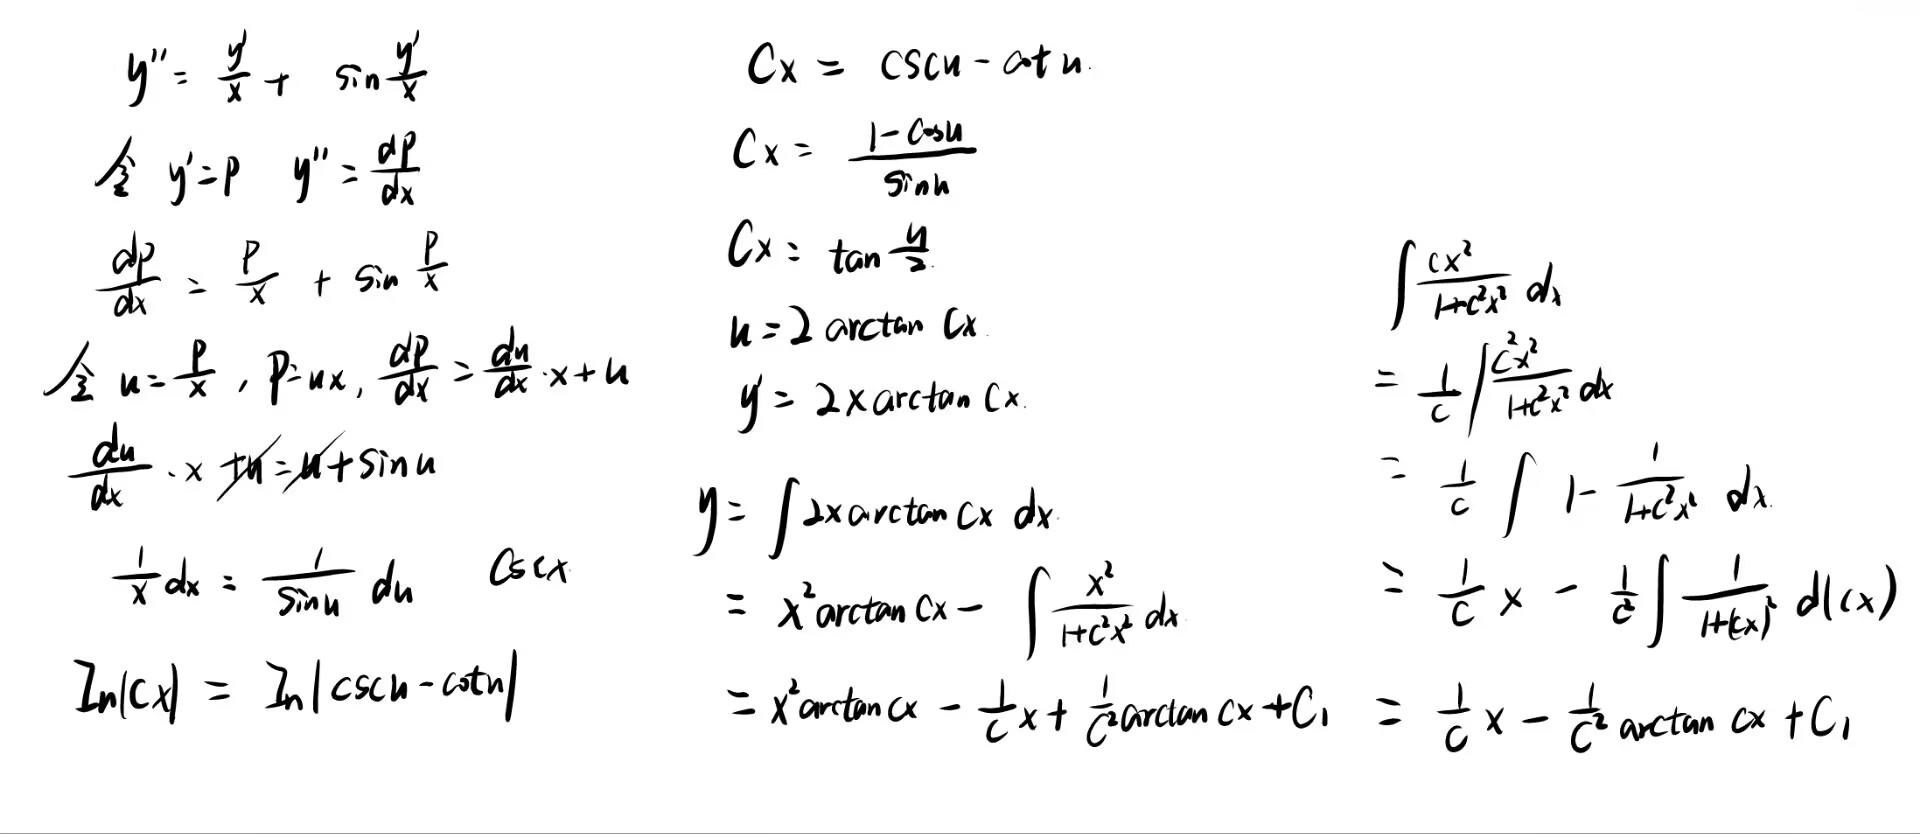 y'' = y'/x + sin y'/x
令 y' = p y'' = dp/dx
dp/dx = p/x + sin p/x
令 u = p/x , p = ux, dp/dx = du/dx · x + u
du/dx · x + u = u + sin u
1/x dx = 1/sin u du csc x
ln|Cx| = ln|csc u - cot u|
Cx = csc u - cot u.
Cx = 1 - cos u / sin u
Cx = tan u/2.
u = 2 arctan Cx.
y' = 2x arctan Cx.
y = ∫ 2x arctan Cx dx.
= x² arctan Cx - ∫ x²/1+C²x² dx.
= x² arctan Cx - 1/C x + 1/C² arctan Cx + C₁
∫ Cx²/1+C²x² dx
= 1/C ∫ C²x²/1+C²x² dx
= 1/C ∫ 1 - 1/1+C²x² dx.
= 1/C x - 1/C² ∫ 1/1+(Cx)² d(Cx)
= 1/C x - 1/C² arctan Cx + C₁